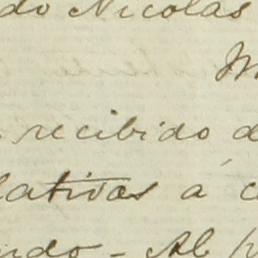 do Nicolas
M
recibido d
lativas á c
ndo - Al p